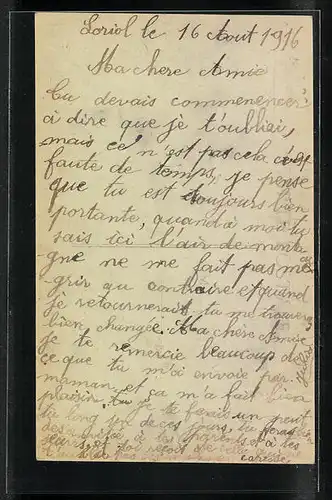 Loriol le 16 Aout 1916
Ma chere Amie
tu devais commenencer
à dire que je t'oubliai,
mais ce n'est pas cela c'est
faute de temps, je pense
que tu est toujours bien
portante, quand à moi tu
sais ici l'air de monta
gne ne me fait pas mai
grir au contraire et quand
je retournerait, tu me trouveras
bien changée. Ma chère Amie
je te remercie beaucoup de
ce que tu m'ai envoie par
maman et ça m'a fait bien
plaisir, je te ferait un petit
long de ces jours, tu
des à tes parents et à tes
et toi reçois de
caresse